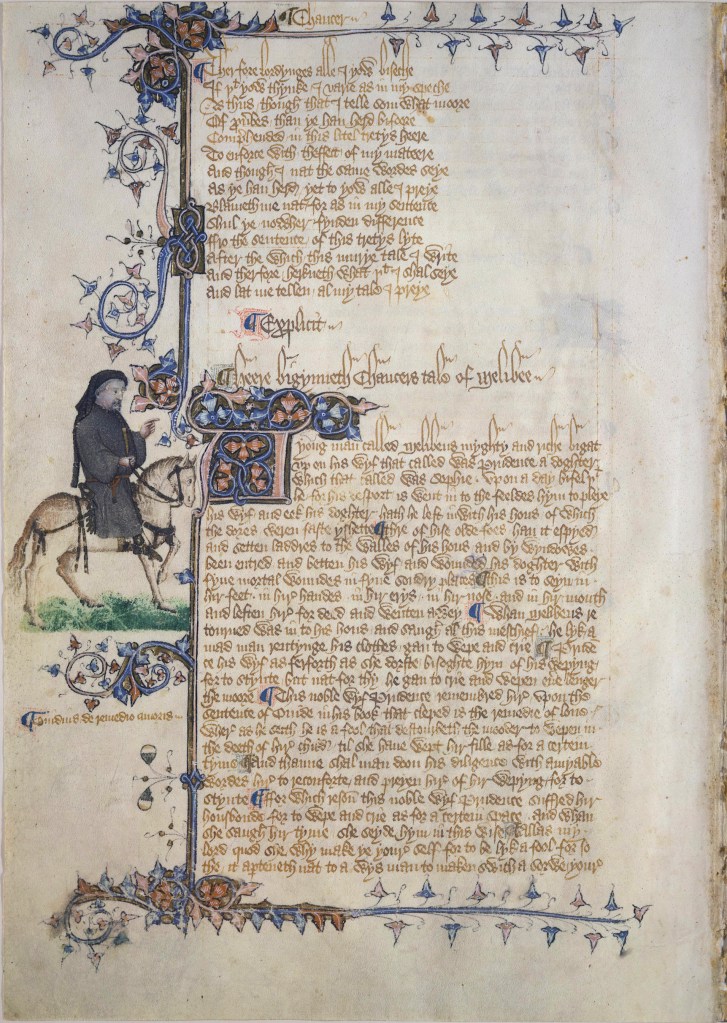 Chaucer
Therfore lordynges alle I yow biseche
If þt yow thynke I varie as in my speche
As thus though that I telle som what moore
Of prouerbes than ye han herd bifoore
Comprehended in this litel tretys heere
To enforce with theffect of my mateere
And though I nat the same wordes seye
As ye han herd yet to yow alle I preye
Blameth me nat for as in my sentence
Shul ye nowher fynden difference
ffro the sentence of this tretys lyte
After the which this murye tale I write
And therfore herkneth what þt I shal seye
And lat me tellen al my tale I preye
Explicit
Heere bigynneth Chaucers tale of Melibee
A yong man called Melibeus myghty and riche bigat
vp on his wyf that called was Prudence a doghter
which that called was Sophie. Vpon a day bifel þt
he for his desport is went in to the feeldes hym to pleye
his wyf and eek his doghter hath he left in with his hous of which
the dores weren faste yshette Thre of hise olde foos han it espyed
and setten laddres to the walles of his hous and by wyndowes
been entred and betten his wyf and wounded his doghter with
fyue mortal woundes in fyue sondry places This is to seyn in
hir feet. in hir handes. in hir erys. in hir nose. and in hir mouth
and leften hir for deed and wenten awey Whan Melibeus re
tourned was in to his hous and saugh al this meschief. he lyk a
mad man rentynge his clothes gan to wepe and crie Pruden
ce his wyf as ferforth as she dorste bisoghte hym of his wepyng
for to stynte but nat for thy he gan to crie and wepen euer lenger
the moore This noble wyf Prudence remembred hir vpon the
sentence of Ouide in his book that cleped is the remedie of loue.
Ouidius de remedio amoris
wher as he seith he is a fool that destourbeth the mooder to wepen in
the deeth of hir child til she haue wept hir fille as for a certein
tyme And thanne shal man doon his diligence with amyable
wordes hir to reconforte and preyen hir of hir wepyng for to
stynte ffor which reson this noble wyf Prudence suffred hir
housbonde for to wepe and crie as for a certein space. and whan
she saugh hir tyme she seyde hym in this wise. Allas my
lord quod she why make ye your self for to be lyk a fool for so
the it aperteneth nat to a wys man to maken swich a sorwe your